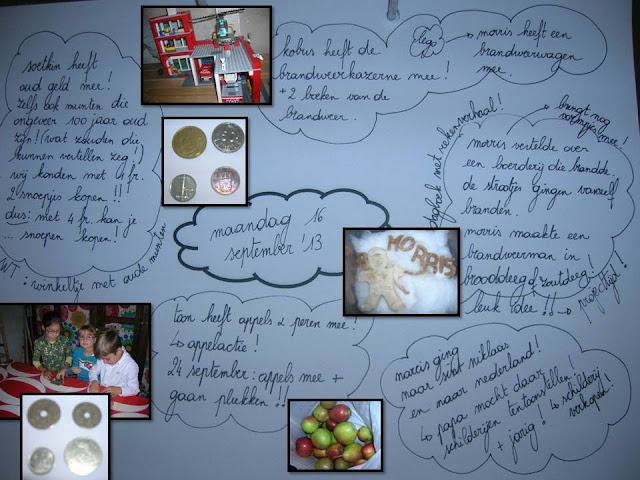 soetkin heeft
oud geld mee!
zelfs ook munten die
ongeveer 100 jaar oud
zijn! (wat zouden die
kunnen vertellen zeg!)
wij konden met 4 fr.
2 snoepjes kopen!!
dus: met 4 fr. kan je
... snoepen kopen!
WT: winkeltje met oude munten
kobus heeft de
brandweerkazerne mee!
+ 2 boeken van de
brandweer.
lego
morris heeft een
brandweerwagen
mee.
maandag 16
september '13
dagboek met rekenverhaal!
brengt nog
vormpjes mee!
morris vertelde over
een boerderij die brandde.
de strootjes gingen vanzelf
branden.
morris maakte een
brandwerman in
brooddeeg of zoutdeeg!
leuk idee!!
projecttijd!
MORRIS
toon heeft appels & peren mee!
↳ appelactie!
24 september: appels mee +
gaan plukken!!
marcis ging
naar sint niklaas
en naar nederland!
↳ papa mocht daar
schilderijen tentoonstellen!
+ jarig! ↳ schilderij
verkocht!